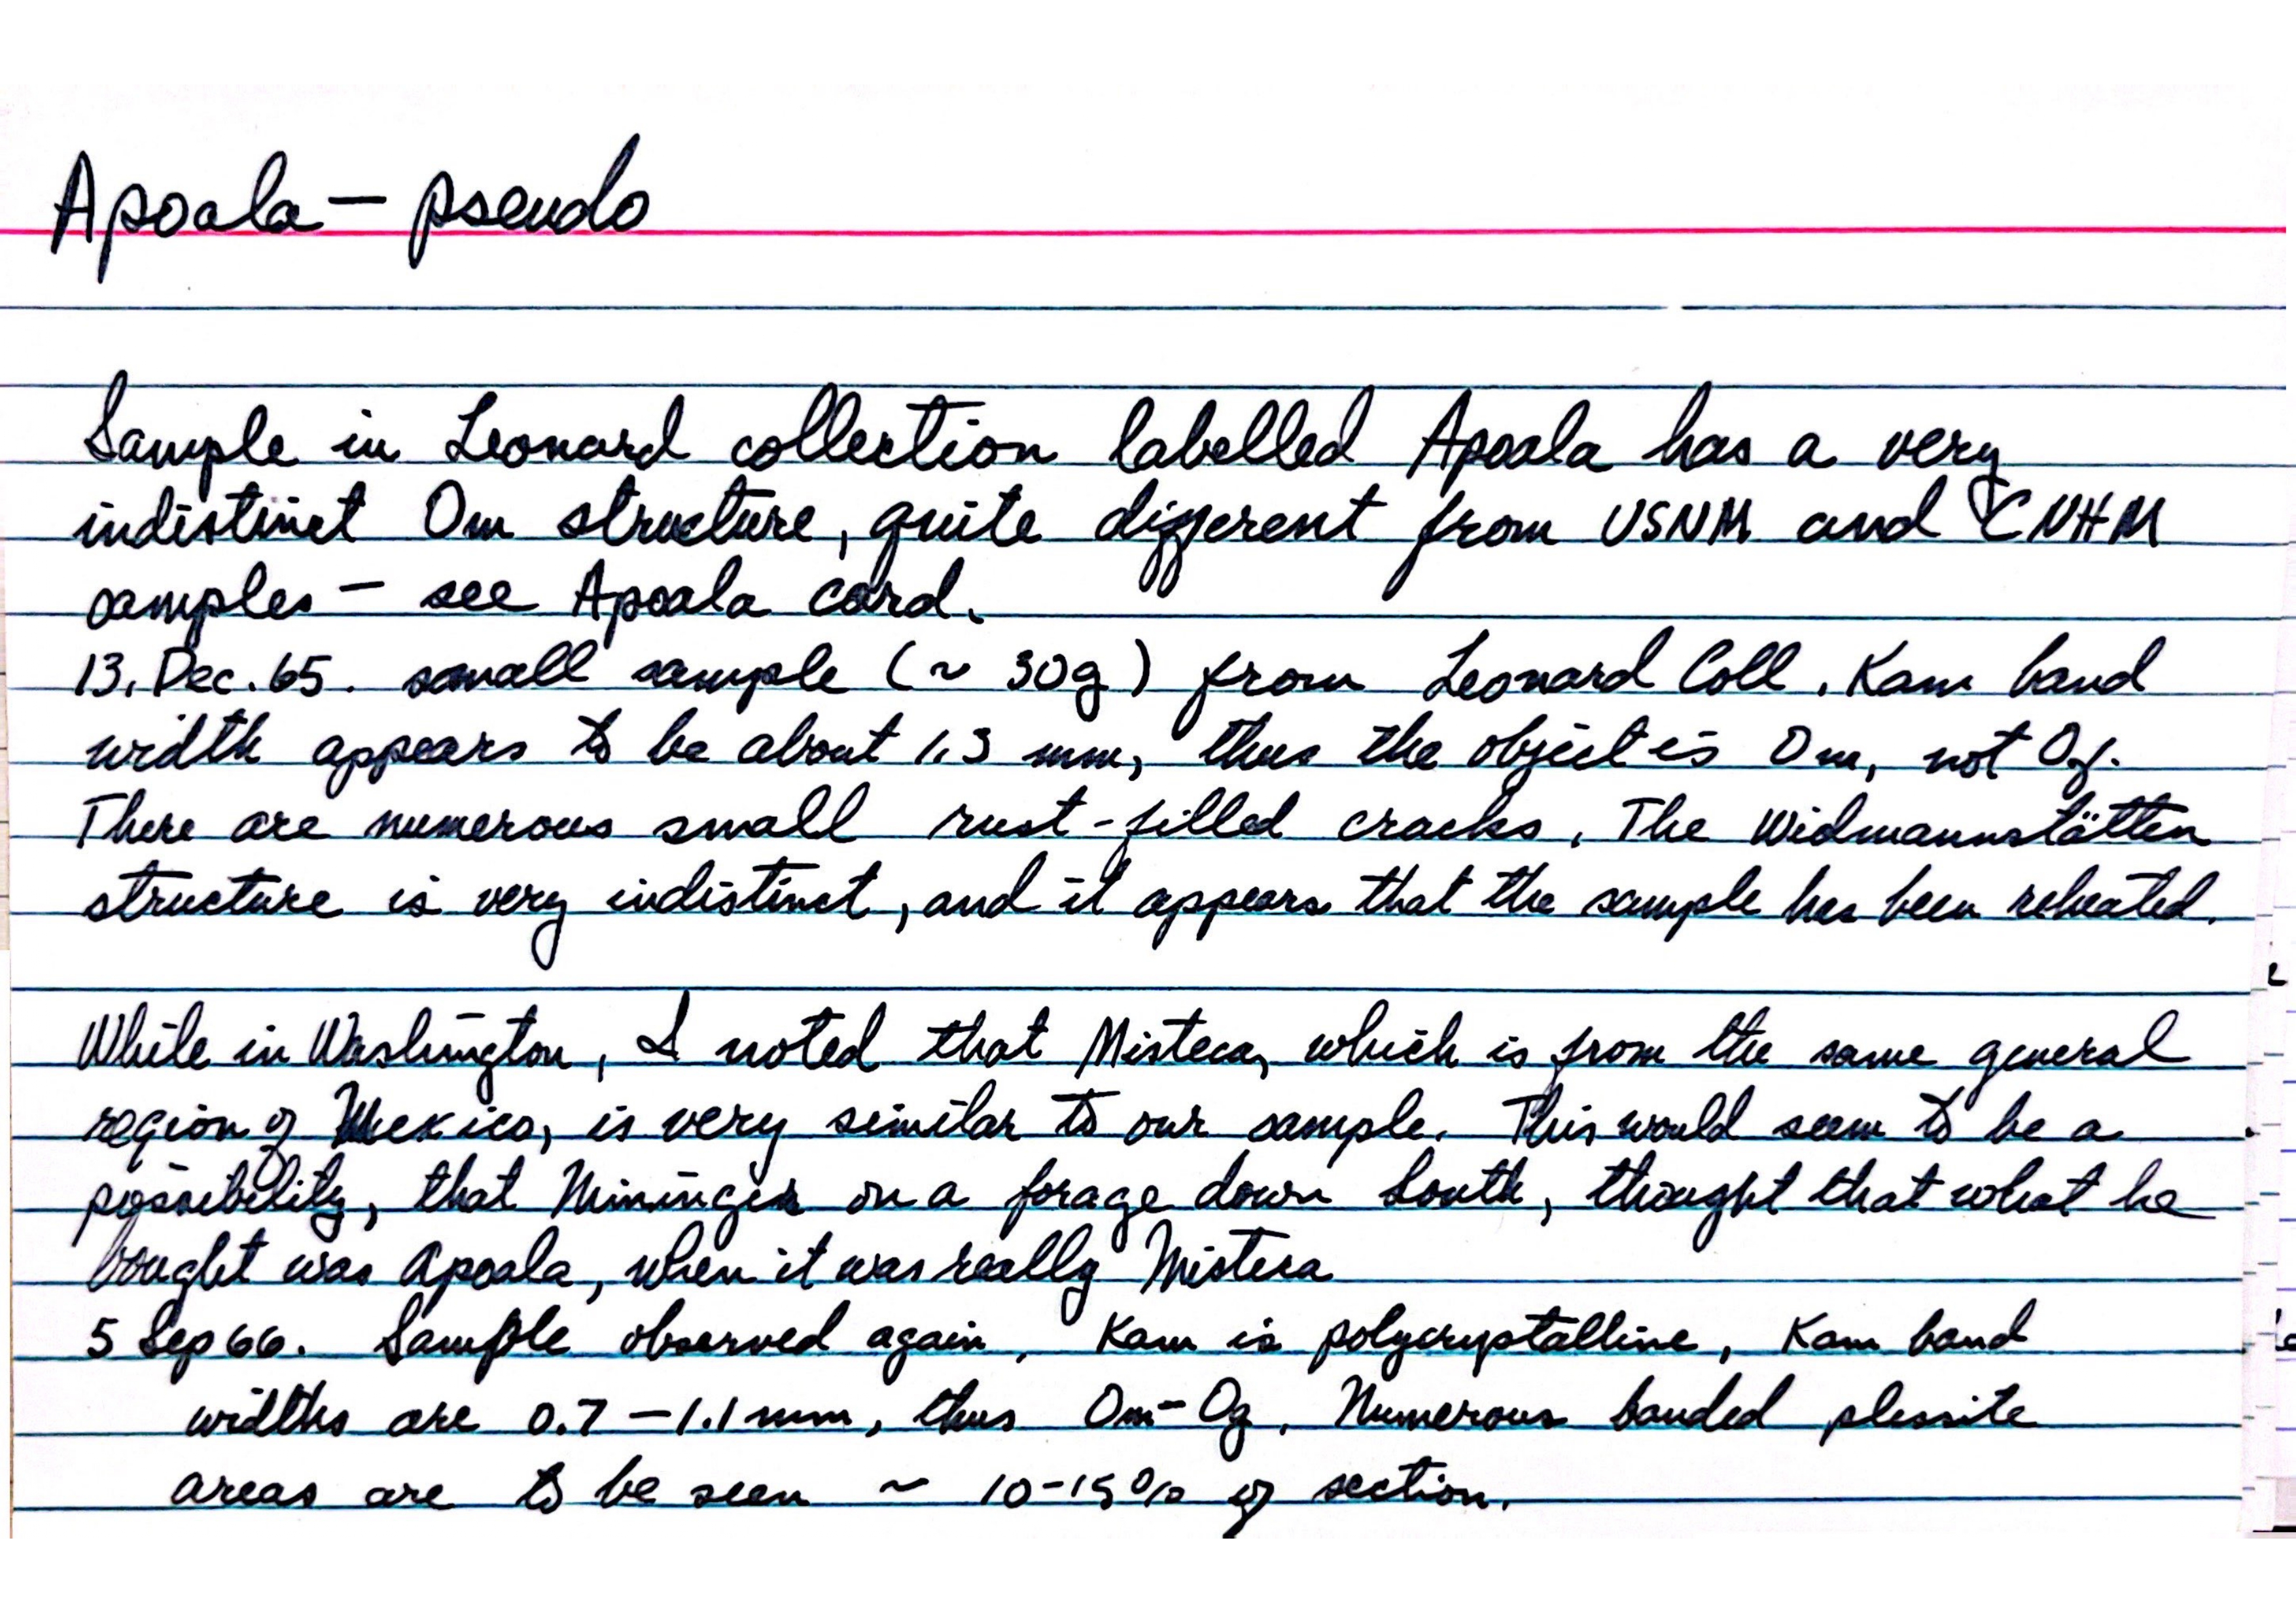 Apoala — pseudo
Sample in Leonard collection labelled Apoala has a very
indistinct Om structure, quite different from USNM and CNHM
samples — see Apoala card.
13. Dec. 65. small sample (~ 30g) from Leonard Coll. Kam band
width appears to be about 1.3 mm, thus the object is Om, not Of.
There are numerous small rust-filled cracks. The Widmannstätten
structure is very indistinct, and it appears that the sample has been reheated.
While in Washington, I noted that Misteca, which is from the same general
region of Mexico, is very similar to our sample. This would seem to be a
possibility, that Nininger on a forage down South, thought that what he
bought was Apoala, when it was really Misteca
5 Sep 66. Sample observed again. Kam is polycrystalline, Kam band
widths are 0.7 — 1.1 mm, thus Om - Og. Numerous banded plessite
areas are to be seen ~ 10-15% of section.